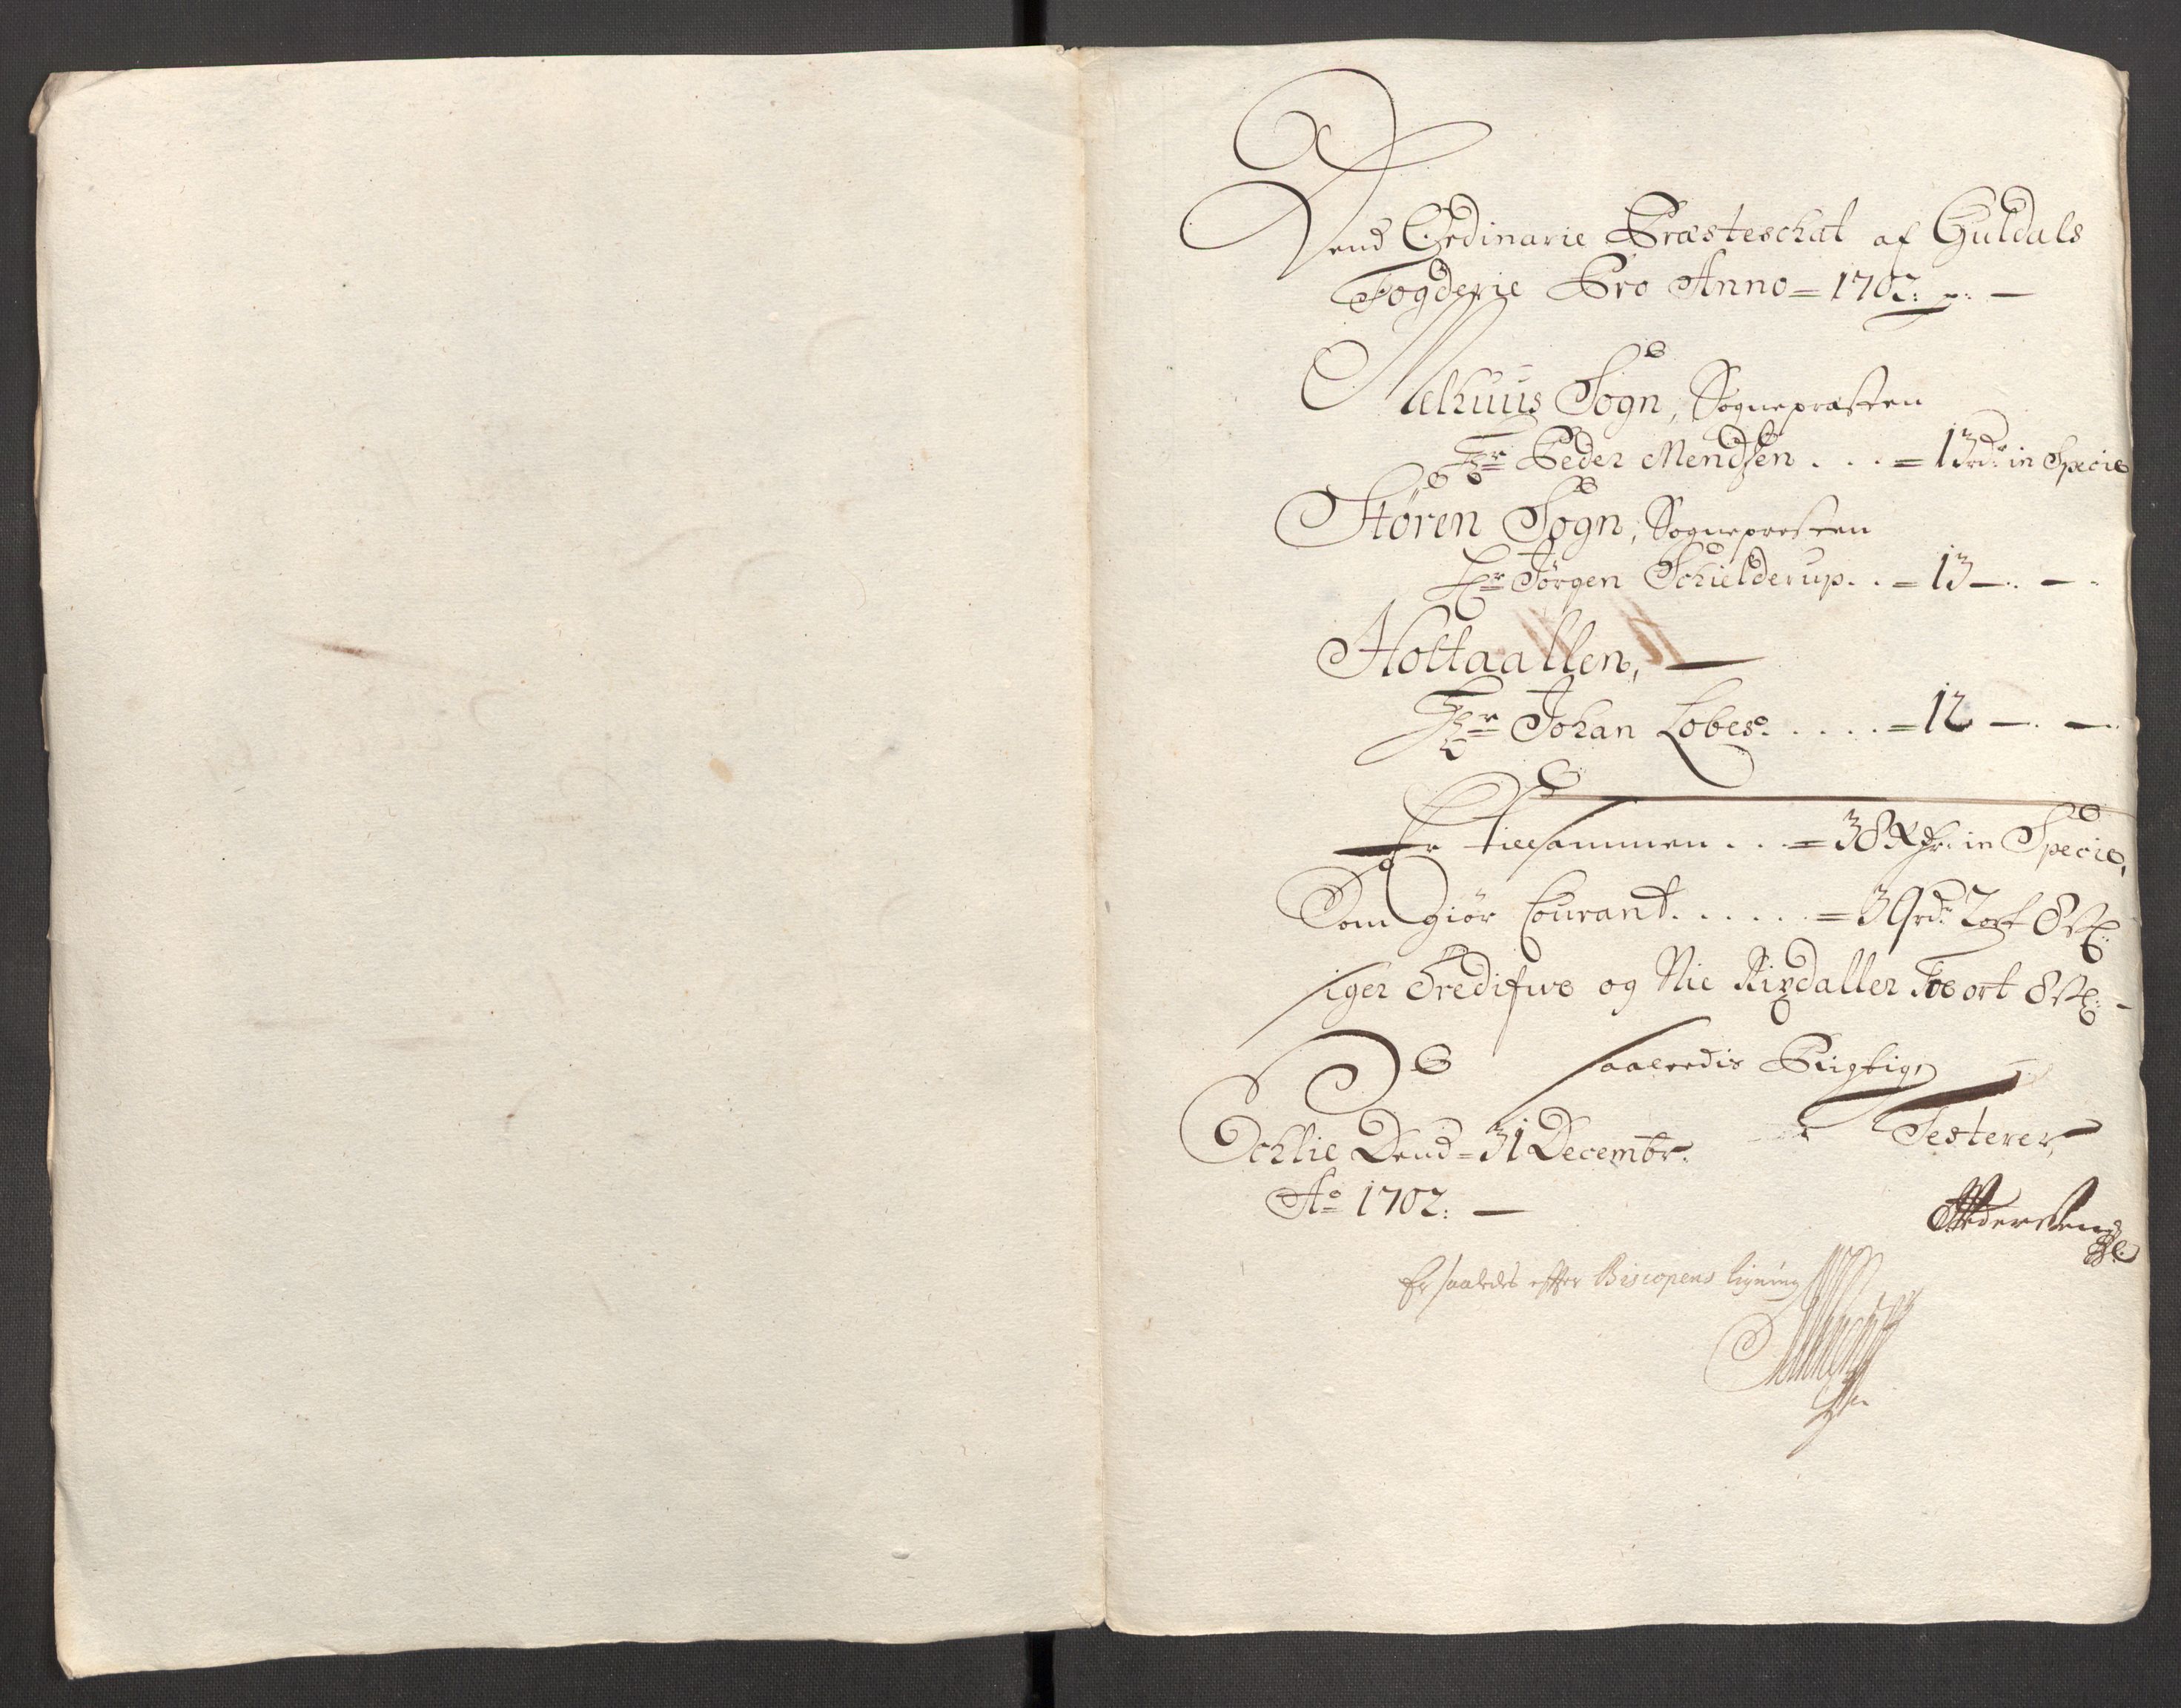 Dend Ordinarie Præsteschat af Guldals
Fogderie Pro Anno = 1702: p: —
Melhuus Sogn, Sognepræsten
Hr Peder Mendsen . . . = 13 rdr in Specie
Støren Sogn, Sognepresten
Hr Jørgen Schielderup . . = 13 —. —.
Holtaallen, —
Hr Johan Lobes: . . . . . = 12 —. —.
Er tilsammen . . = 38 Rdr: in Specie,
Som Giør Courant . . . . . = 39 rdr 2 ort 8 sk:
siger Tredifve og Nie Rixdaller Toe ort 8 sk: —
saaledis Rigtig
Testerer
Schlie Dend = 31 Decembr.
Ao 1702: —
Er saaledes efter Biscopens ligning